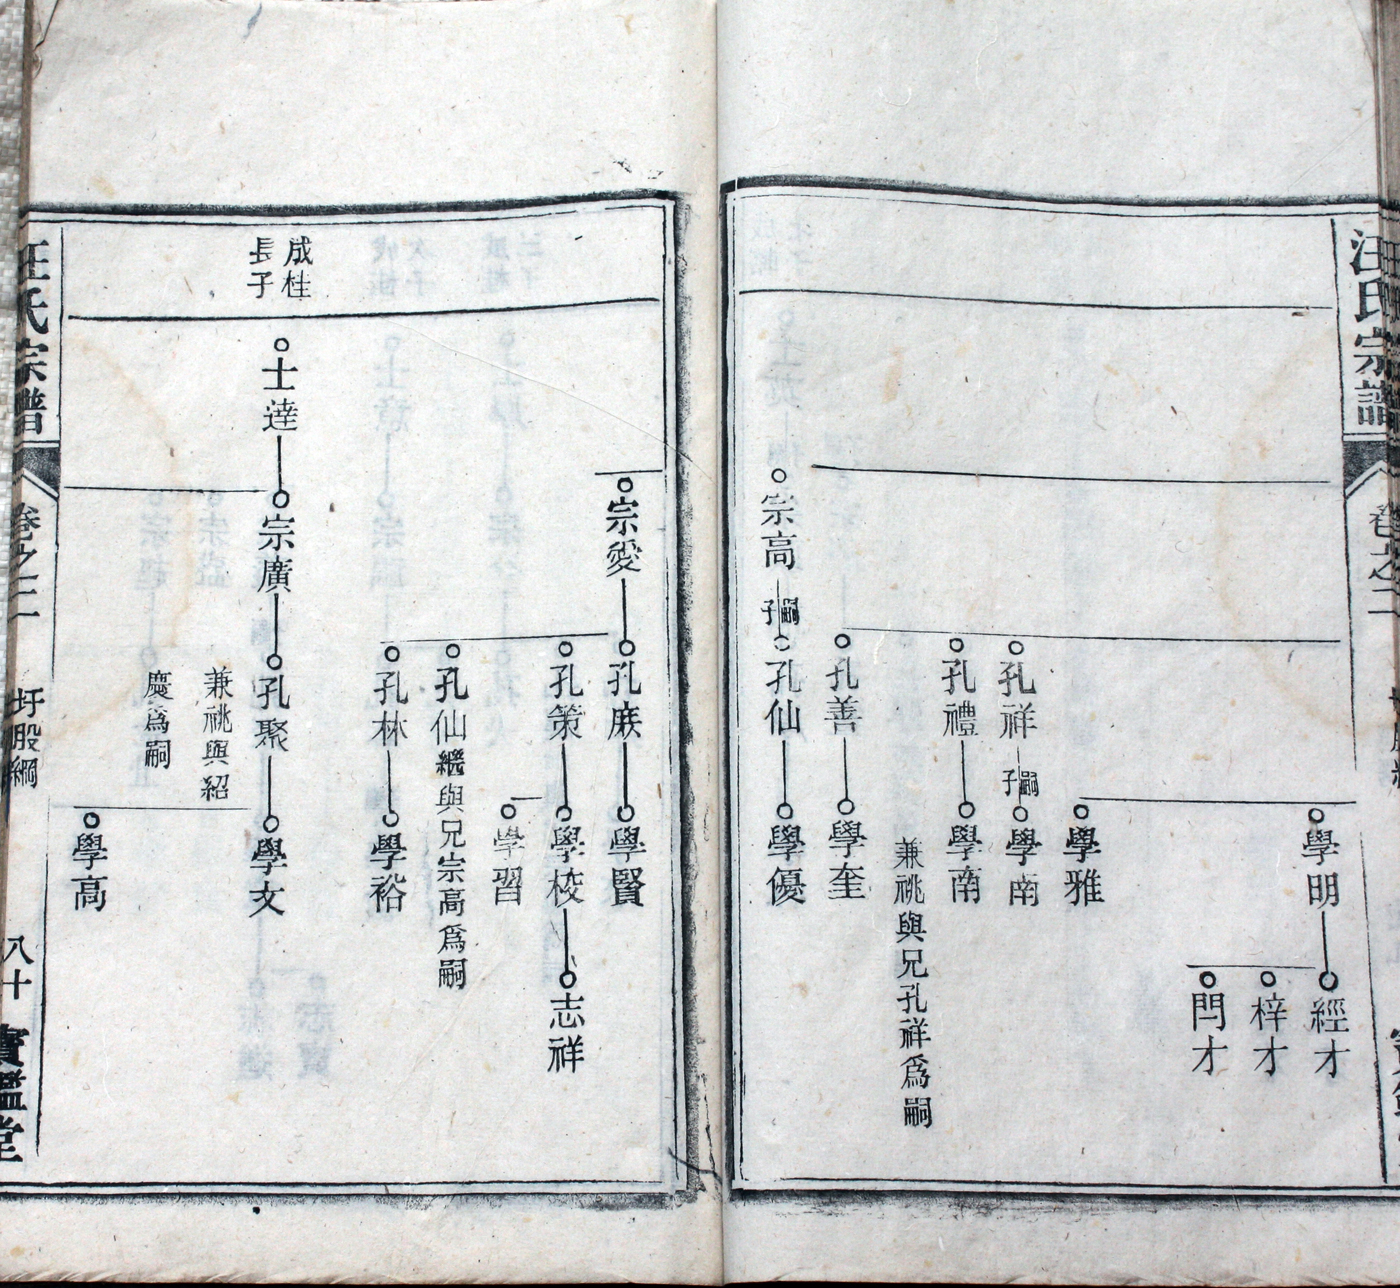 汪氏宗譜
卷之二
學明
經才
梓才
閂才
學雅
孔祥
嗣子
學南
孔禮
學南
兼祧與兄孔祥爲嗣
孔善
學奎
宗高
嗣子
孔仙
學優
宗愛
孔庥
學賢
孔策
學校
志祥
學習
孔仙繼與兄宗高爲嗣
孔林
學裕
成桂
長子
士達
宗廣
孔聚
學文
兼祧與紹
慶爲嗣
學高
汪氏宗譜
卷之二
圩股綱
八十
寳鑑堂